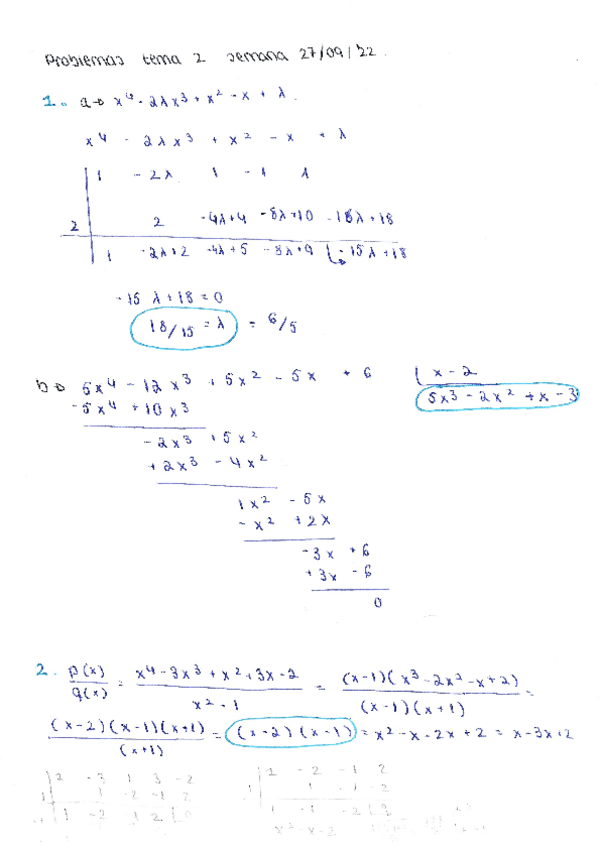 Problemas tema 2 semana 27/09/22.
1. a→ x⁴ - 2λx³ + x² - x + λ.
x⁴ - 2λx³ + x² - x + λ
1 - 2λ 1 - 1 λ
2 2 -4λ+4 -8λ+10 -16λ+18
1 -2λ+2 -4λ+5 -8λ+9 -15λ+18
-15λ+18=0
18/15 = λ = 6/5
b→ 5x⁴ - 12x³ + 5x² - 5x + 6 | x - 2
-5x⁴ +10x³ 5x³ - 2x² + x - 3
-2x³ + 5x²
+2x³ - 4x²
1x² - 5x
- x² + 2x
-3x + 6
+3x - 6
0
2. p(x)/q(x) = x⁴-3x³+x²+3x-2 / x²-1 = (x-1)(x³-2x²-x+2) / (x-1)(x+1) =
(x-2)(x-1)(x+1) / (x+1) = (x-2)(x-1) = x²-x-2x+2 = x-3x+2